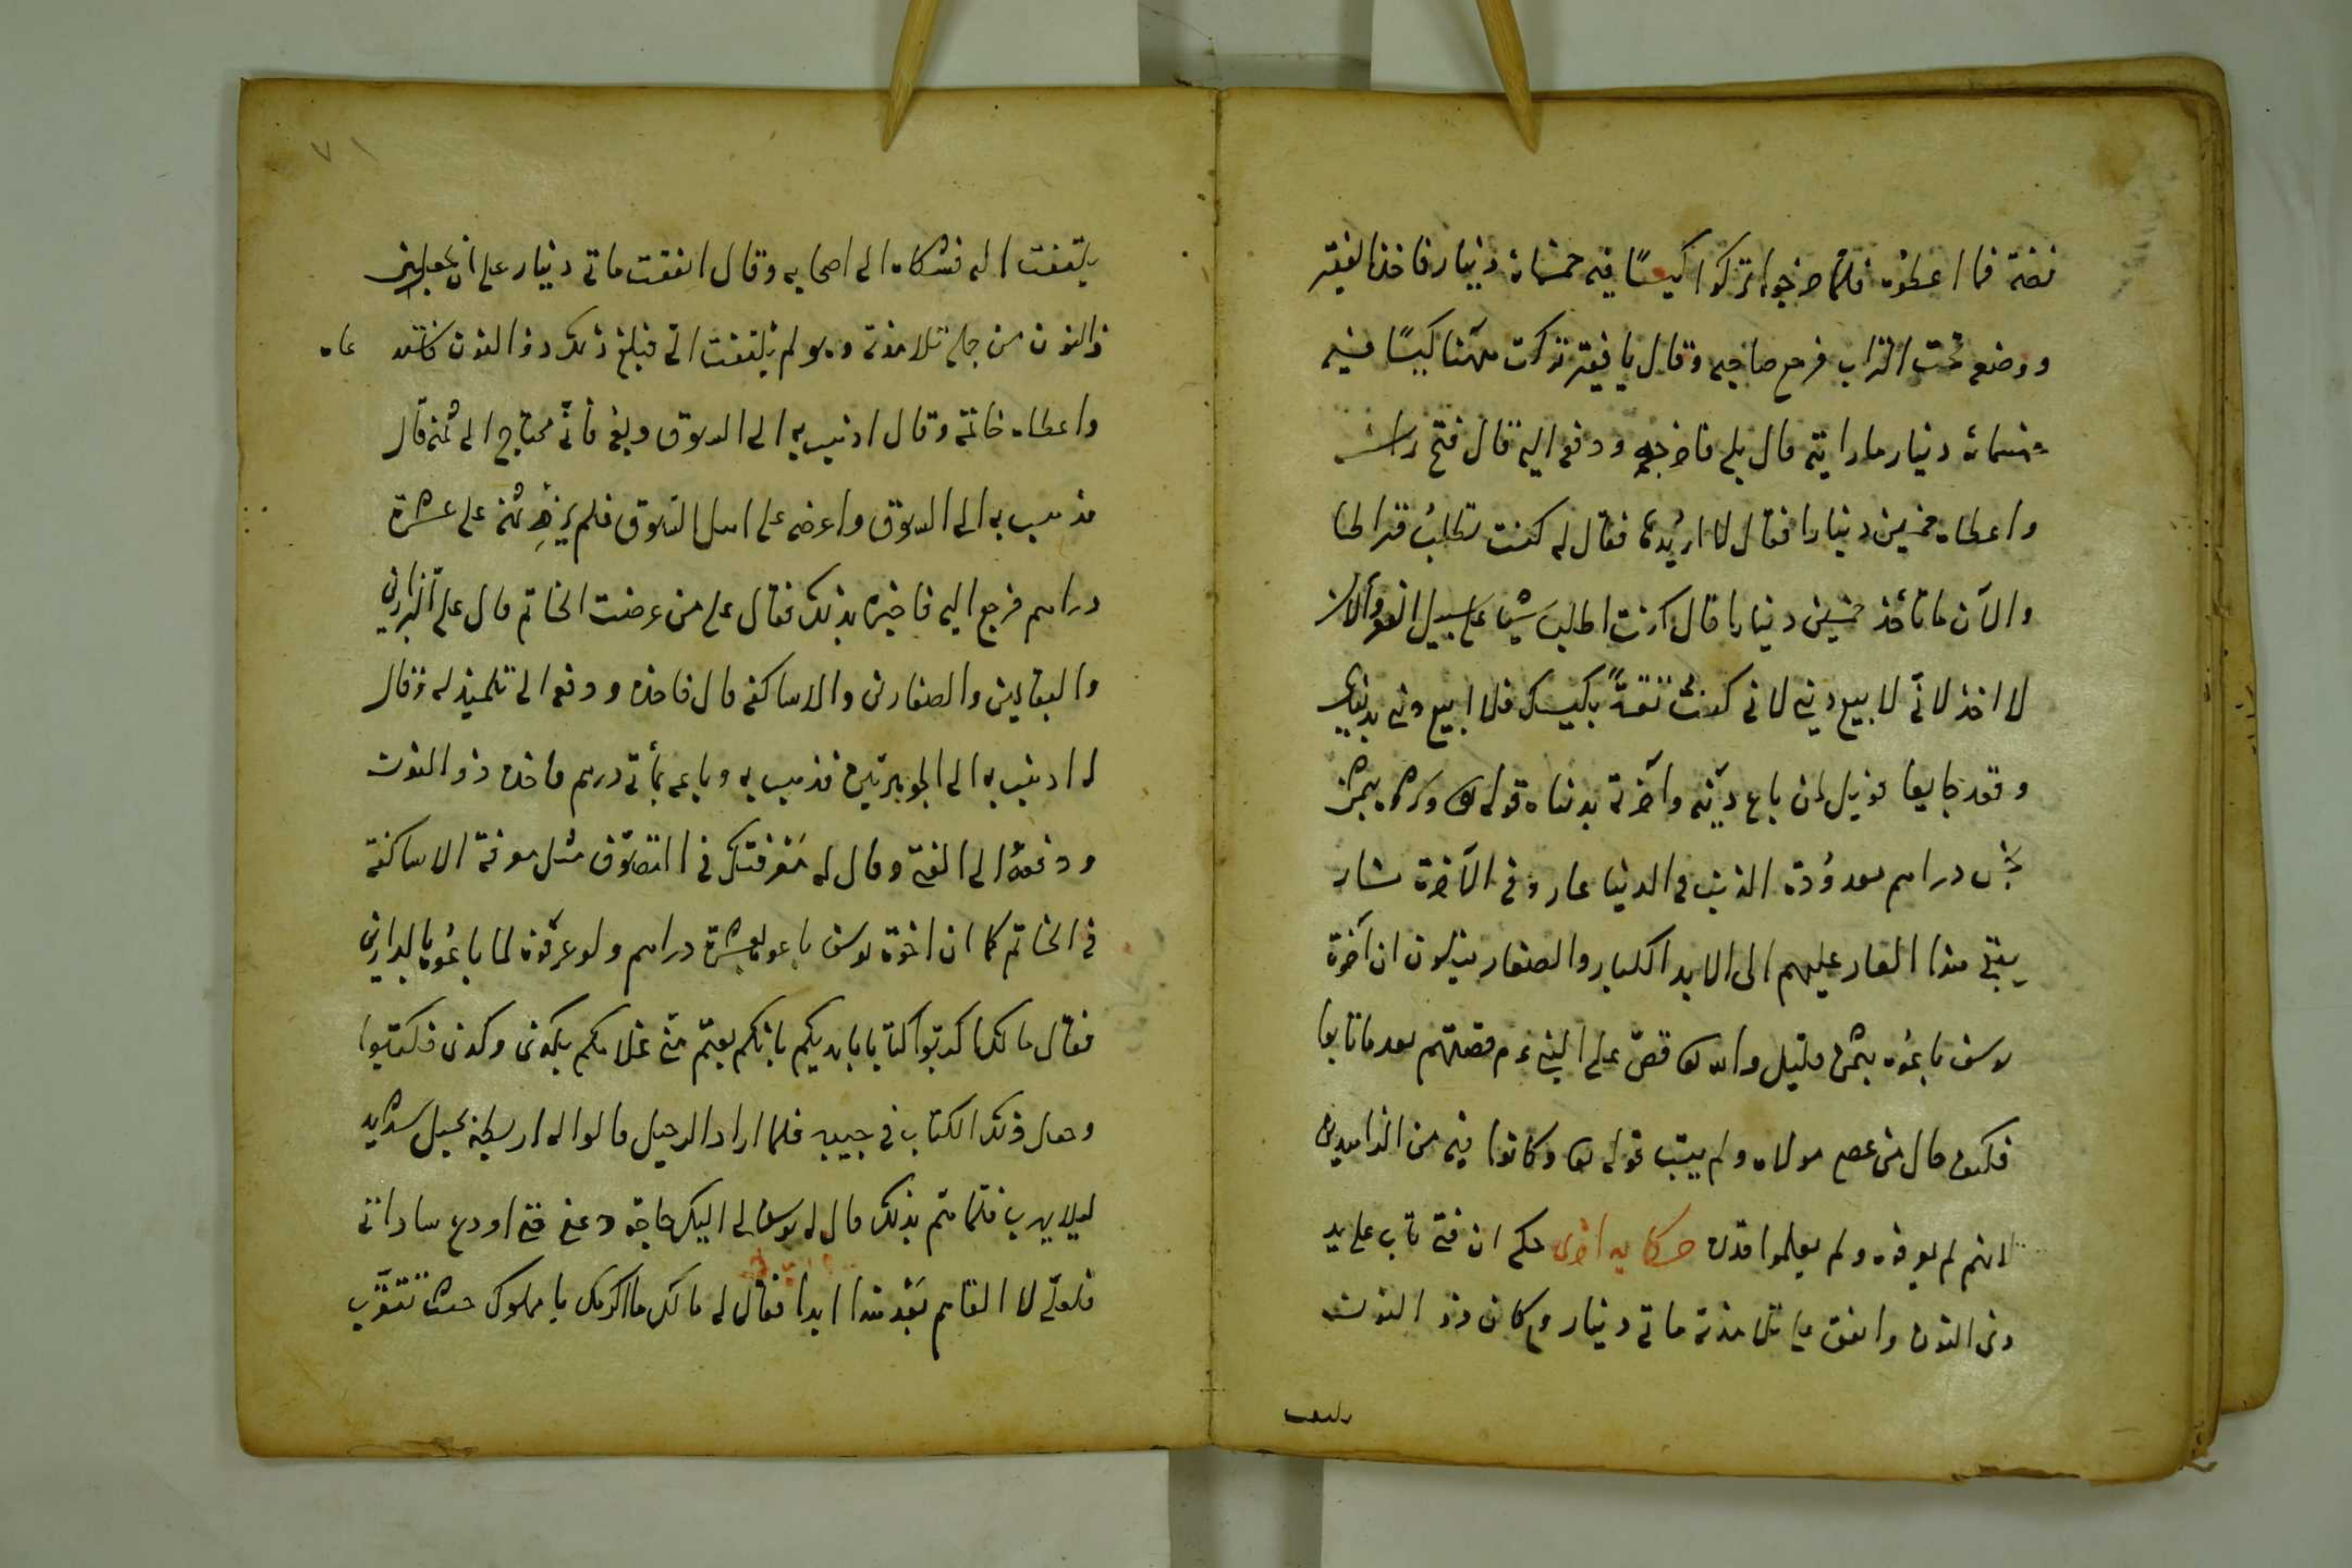 فضة فما اعطوه فلما خرجوا تركوا كيسًا فيه خمسمائة دينار فاخذ الفقير
ووضعه تحت التراب فرجع صاحبه وقال يا فقير تركت ههنا كيسًا فيه
خمسمائة دينار ما رايته قال بلى فاخرجه ودفعه اليه قال فتح راسه
واعطاه خمسين دينارا فقال لا اريدها فقال له كنت تطلب قيراطا
والآن ما تأخذ خمسين دينارا قال كنت اطلب شيا على سبيل والآن
لا اخذ لانّي لا ابيع ديني لاني كنت ثقةً بكيسك فلا ابيع ديني بدنياي
وقعد فويل لمن باع دينه وآخرته بدنياه قوله تعالى وشروه بثمن
بخس دراهم معدودة الذنب في الدنيا عار وفي الآخرة نار
يبقى هذا العار عليهم الى الابد الكبار والصغار يتلون ان اخوة
يوسف باعوه بثمن قليل والله تعالى قصّ على النبي عم قصتهم بعد ما تابوا
فكيف حال من عصى مولاه ولم يتب قوله تعالى وكانوا فيه من الزاهدين
لانهم لم يعرفوه ولم يعلموا قدره حكاية اخرى حكي ان فتى تاب على يد
ذي النون وانفق على تلامذته مائتي دينار وكان ذو النون
يلتفت
٧١
يلتفت اليه فشكاه الى اصحابه وقال انفقت مائتي دينار على ان يجعلني
ذا النون من جملة تلامذته وهو لم يلتفت الي فبلغ ذلك ذو النون دعاه
واعطاه خاتمه وقال اذهب به الى السوق وبعه فانّي محتاج الى ثمنه قال
فذهب به الى السوق واعرضه على اهل السوق فلم يزد ثمنه على عشرة
دراهم فرجع اليه فاخبره بذلك فقال على من عرضت الخاتم قال على البزازين
والبقالين والصفارين والاساكفة قال فاخذه ودفعه الى تلميذ له وقال
له اذهب به الى الجوهريين فذهب به وباعه بمأتي درهم فاخذه ذو النون
ودفعه الى الفتى وقال له معرفتك في التصوّف مثل معرفة الاساكفة
في الخاتم كما ان اخوة يوسف باعوه بعشرة دراهم ولو عرفوه لما باعوه بالدارين
فقال مالك اكتبوا كتابا بايديكم بانكم بعتم مني غلامكم بكذى وكذى فكتبوا
وجعل ذلك الكتاب في جيبه فلما اراد الرحيل قالوا له اربطه بحبل شديد
ليلا يهرب فلما همّ بذلك قال له يوسف لي اليك حاجة دعني حتى اودع ساداتي
فلعلّي لا القاهم بعد هذا ابدا فقال له مالك ما اكرمك يا مملوك حيث تتقرّب